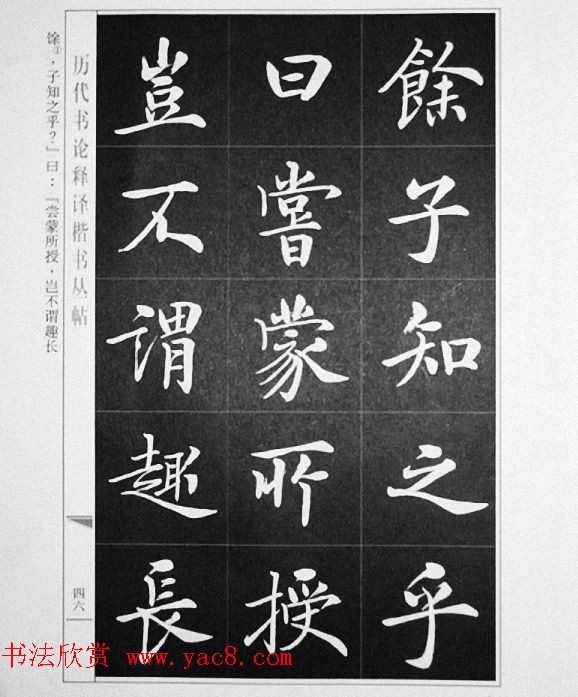 餘子知之乎
曰嘗蒙所授
豈不谓趣長
历代书论释译楷书丛帖
四六
馀①，子知之乎？」曰：「尝蒙所授，岂不谓趣长
书法欣赏 www.yac8.com